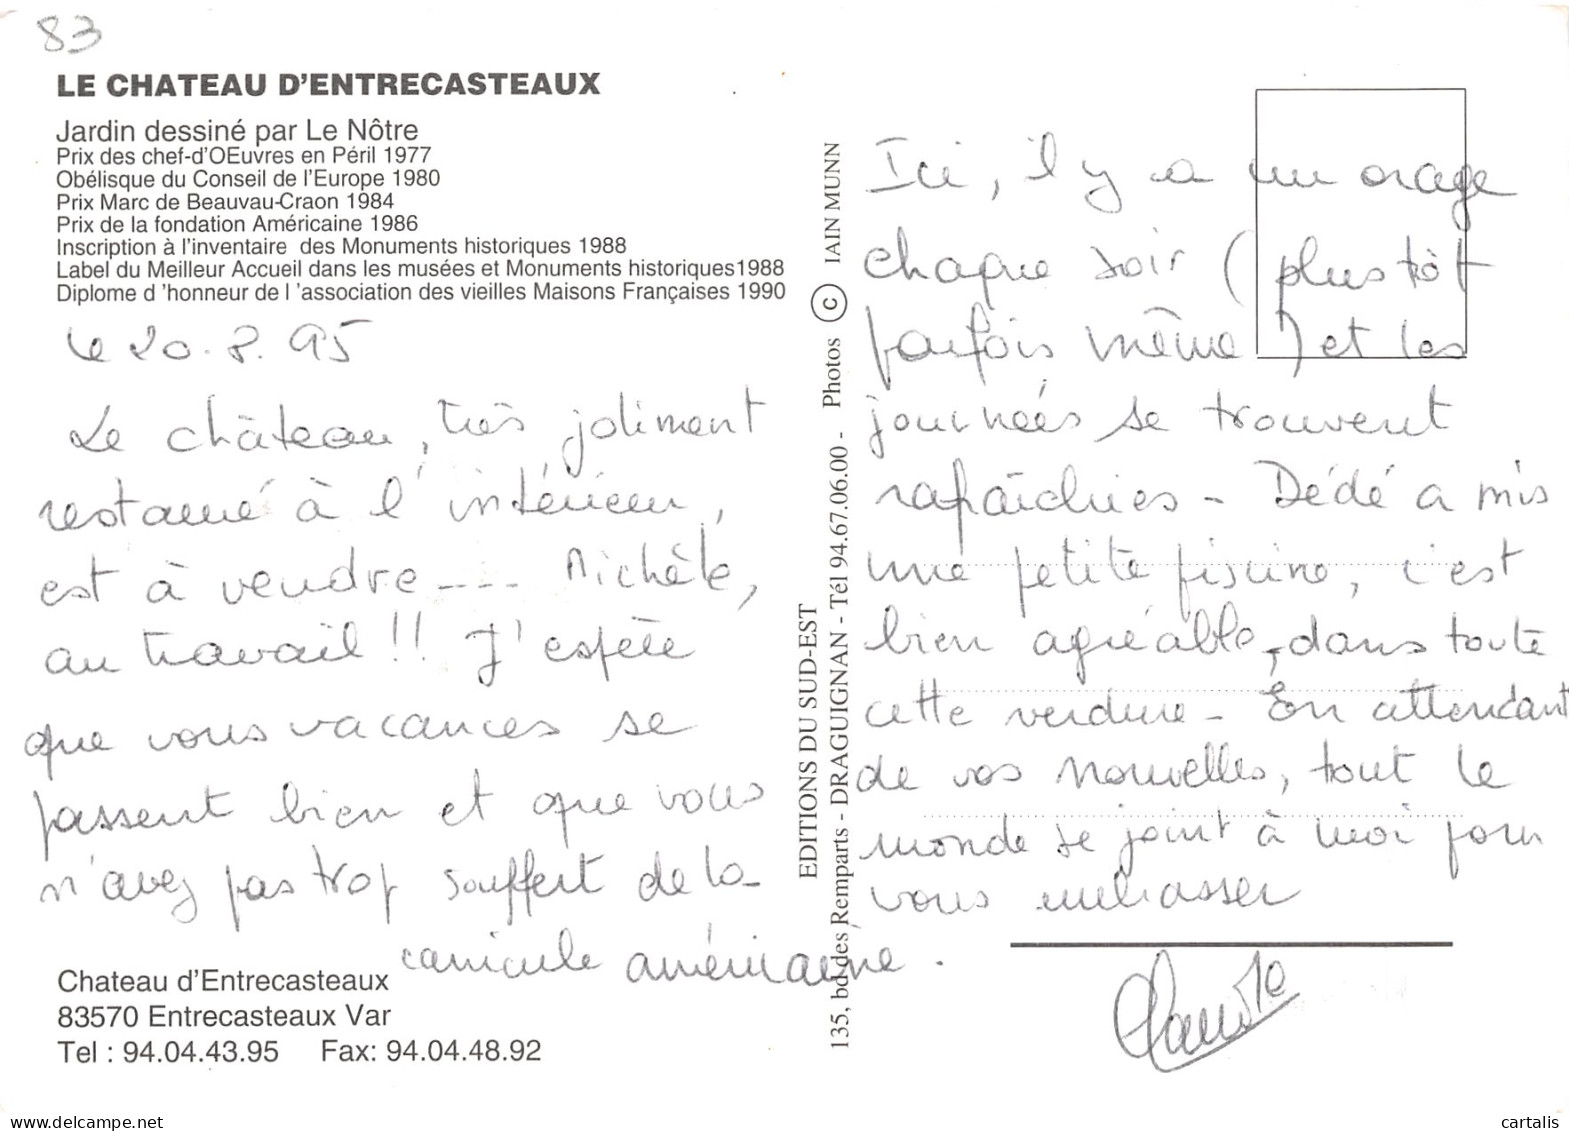 83
LE CHATEAU D'ENTRECASTEAUX
Jardin dessiné par Le Nôtre
Prix des chef-d'OEuvres en Péril 1977
Obélisque du Conseil de l'Europe 1980
Prix Marc de Beauvau-Craon 1984
Prix de la fondation Américaine 1986
Inscription à l'inventaire des Monuments historiques 1988
Label du Meilleur Accueil dans les musées et Monuments historiques1988
Diplome d 'honneur de l 'association des vieilles Maisons Françaises 1990
Le 20.8.95
Le château, très joliment
restauré à l'intérieur,
est à vendre --- Michèle,
au travail !! J'espère
que vous vacances se
passent bien et que vous
n'avez pas trop souffert de la
canicule américaine.
Chateau d'Entrecasteaux
83570 Entrecasteaux Var
Tel : 94.04.43.95 Fax: 94.04.48.92
EDITIONS DU SUD-EST
135, bd des Remparts - DRAGUIGNAN - Tél 94.67.06.00 - Photos © IAIN MUNN
Ici, il y a un orage
chaque soir (plus tôt
parfois même) et les
journées se trouvent
rafraîchies - Dédé a mis
une petite piscine, c'est
bien agréable, dans toute
cette verdure - En attendant
de vos nouvelles, tout le
monde se joint à moi pour
vous embrasser
cartalis